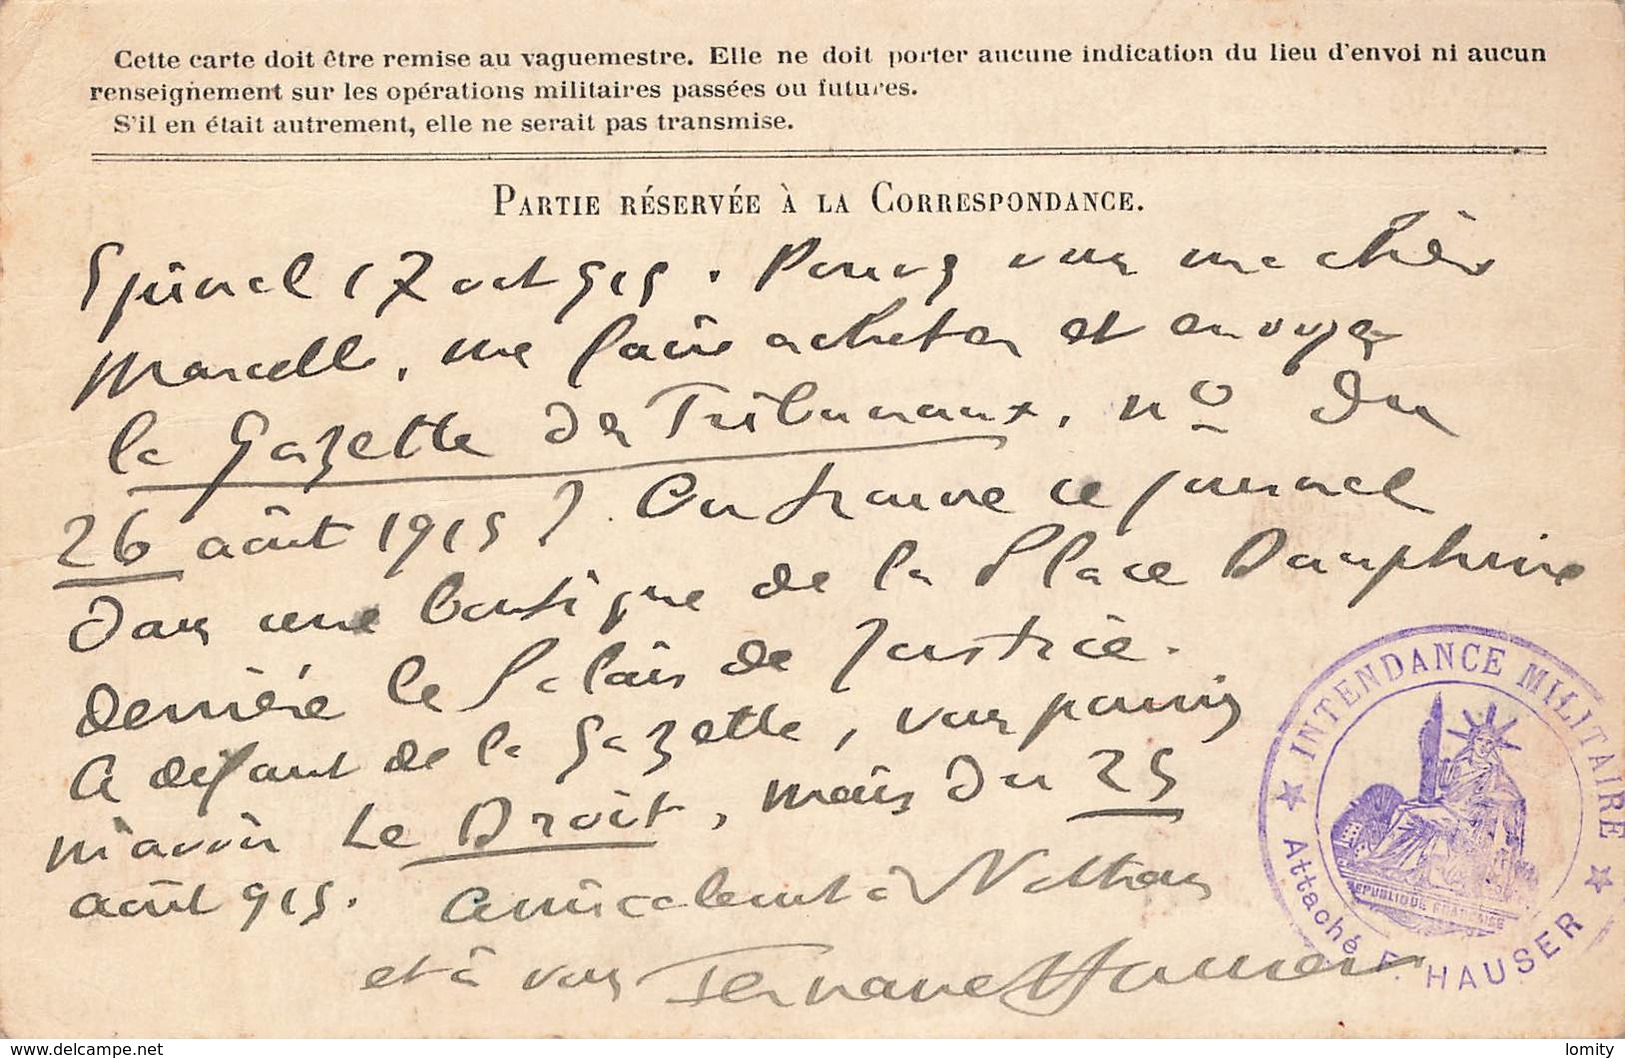 Cette carte doit être remise au vaguemestre. Elle ne doit porter aucune indication du lieu d'envoi ni aucun
renseignement sur les opérations militaires passées ou futures.
S'il en était autrement, elle ne serait pas transmise.
PARTIE RÉSERVÉE À LA CORRESPONDANCE.
Epinal 17 oct 915. Pouvez vous ma chère
Marcelle, me faire acheter et envoyer
la Gazette des Tribunaux, nº du
26 août 1915 ? On trouve ce journal
dans une boutique de la Place Dauphine
derrière le Palais de Justice.
A défaut de la Gazette, vous pourriez
m'avoir Le Droit, mais du 25
août 915. Amicalement à Nathan
et à vous Fernand Hauser
INTENDANCE MILITAIRE
REPUBLIQUE FRANÇAISE
Attaché F. HAUSER
https://www.delcampe.net
lomity